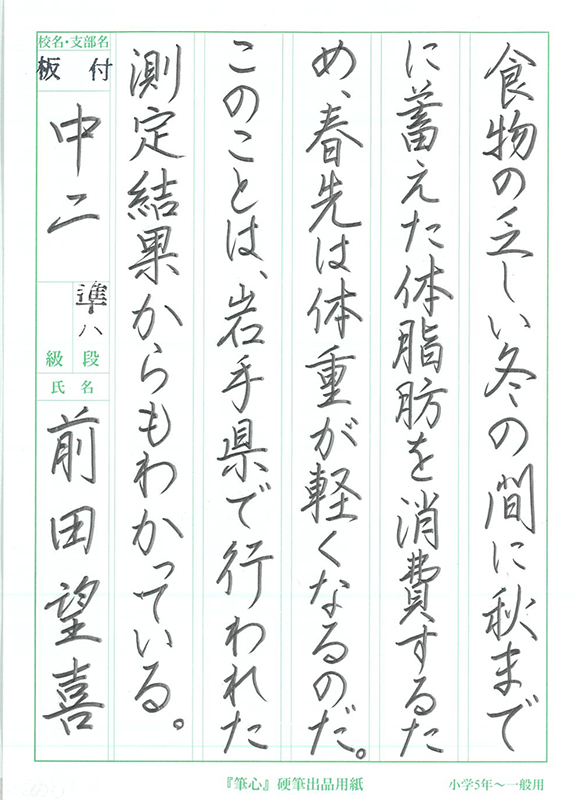 食物の乏しい冬の間に秋まで
に蓄えた体脂肪を消費するた
め、春先は体重が軽くなるのだ。
このことは、岩手県で行われた
測定結果からもわかっている。
校名・支部名
板付
中二
準八
級段
氏名
前田望喜
『筆心』硬筆出品用紙
小学5年～一般用